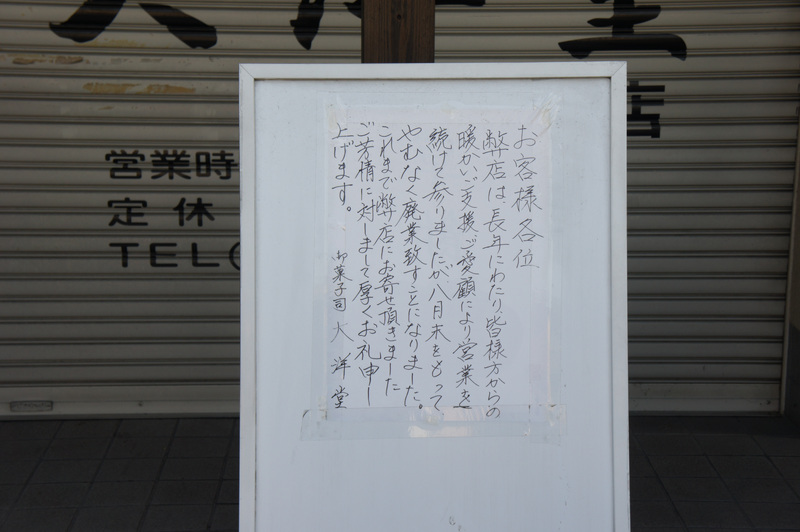 お客様各位
弊店は、長年にわたり、皆様方からの
暖かいご支援、ご愛顧により営業を
続けて参りましたが、八月末をもって
やむなく廃業致すことになりました。
これまで弊店にお寄せ頂きました
ご芳情に対しまして厚くお礼申し
上げます。
御菓子司 大洋堂
営業時
定休
TEL
店